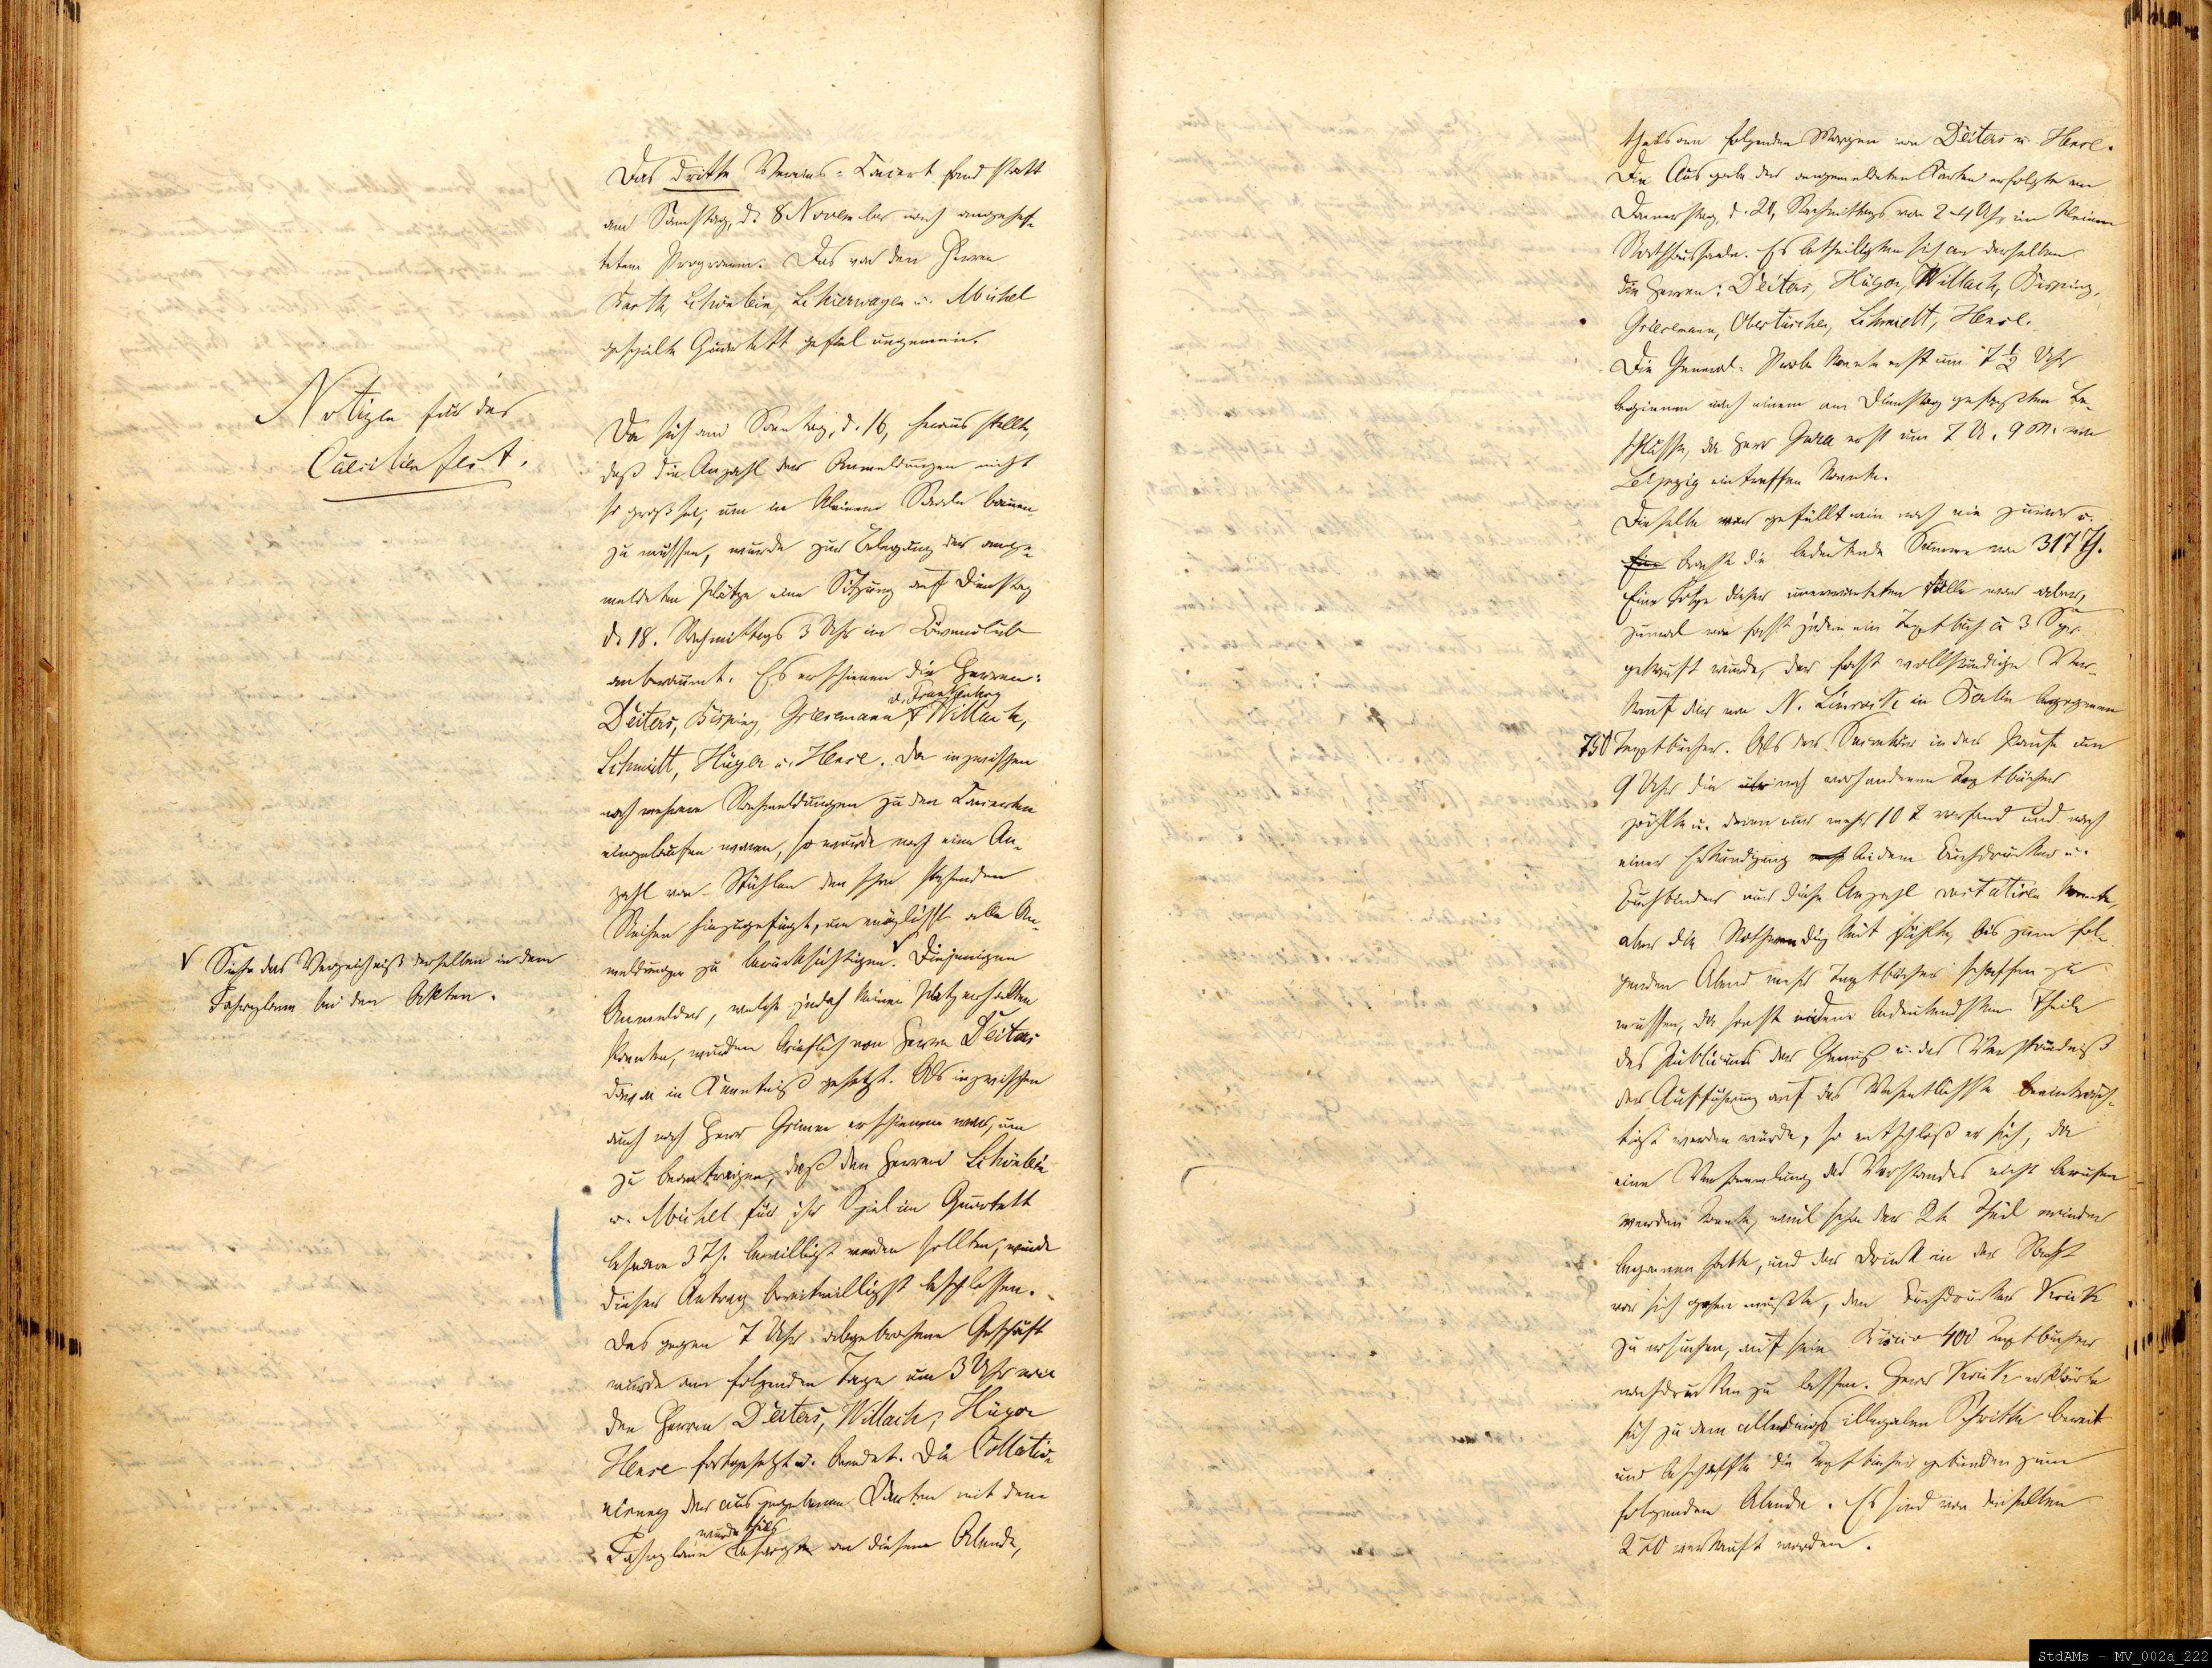 Das dritte Vereins-Concert fand statt
am Samstag, d. 8 November nach angehef-
tetem Programm. Das von den Herren
Barth, Schönlein, Schierwagen u. Michel
gespielte Quartett gefiel ungemein.
Notizen für das
Cäcilienfest.
Da sich am Sonntag, d. 16, herausstellte,
daß die Anzahl der Anmeldungen nicht
so groß sei, um im kleinen Saale bauen
zu müssen, wurde zur Belegung der ange-
meldeten Plätze eine Sitzung auf Dienstag
d. 18. Nachmittags 3 Uhr im Löwenclub
anberaumt. Es erschienen die Herren:
Deiters, Bisping, Griesemann, v. Frankenberg, Willach,
Schmidt, Hüger u. Hense. Da inzwischen
noch mehrere Nachmeldungen zu den Concerten
eingelaufen waren, so wurde noch eine An-
zahl von Stühlen den schon stehenden
Reihen hinzugefügt, um möglichst alle An-
meldungen zu berücksichtigen. V Diejenigen
V Siehe das Verzeichniß derselben in dem
Fahrplane bei den Akten.
Anmelder, welche jedoch keinen Platz erhalten
konnten, wurden brieflich von Herrn Deiters
davon in Kenntniß gesetzt. Als inzwischen
auch noch Herr Grimm erschienen war, um
zu beantragen, daß den Herren Schönlein
u. Michel für ihr Spiel im Quartett
3 Th. bewilligt werden sollten, wurde
dieser Antrag bereitwilligst beschlossen.
Das gegen 7 Uhr abgebrochene Geschäft
wurde am folgenden Tage um 3 Uhr von
den Herren Deiters, Willach, Hüger
Hense fortgesetzt u. beendet. Die Collatio-
nirung der ausgegebenen Karten mit dem
Fahrplane wurde theils besorgt an diesem Abende,
theils am folgenden Morgen von Deiters u. Hense.
Die Ausgabe der angemeldeten Karten erfolgte am
Donnerstag, d. 20, Nachmittags von 2-4 Uhr im kleinen
Rathhaussaale. Es betheiligten sich an derselben
die Herren: Deiters, Hüger, Willach, Bisping,
Griesemann, Obertüschen, Schmidt, Hense.
Die General-Probe konnte erst um 7 1/2 Uhr
beginnen nach einem am Dienstag gefaßten Be-
schlusse, da Herr Gura erst um 7 U. 9 M. von
Leipzig eintreffen konnte.
Dieselbe war gefüllt wie noch nie zuvor u.
brachte die bedeutende Summe von 317 Th.
Eine Folge dieser unerwarteten Fülle war aber,
zumal von fast jedem ein Textbuch à 3 Sgr.
gekauft wurde, der fast vollständige Ver-
kauf der von N. Simrock in Berlin bezogenen
750 Textbücher. Als der Secretär in der Pause um
9 Uhr die noch vorhandenen Textbücher
zählte u. deren nur mehr 107 vorfand und nach
einer Erkundigung bei dem Buchdrucker u.
Buchbinder nur diese Anzahl constatiren konnte,
aber die Nothwendigkeit fühlte, bis zum fol-
genden Abend mehr Textbücher schaffen zu
müssen, da sonst einem bedeutendsten Theile
des Publicums der Genuß u. das Verständniß
der Aufführung auf das Wesentlichste beeinträch-
tigt werden würde, so entschloß er sich, da
eine Versammlung des Vorstandes nicht berufen
werden konnte, weil schon der 2te Theil wieder
begonnen hatte, und der Druck in der Nacht
vor sich gehen mußte, den Buchdrucker Krick
zu ersuchen, auf sein Risico 400 Textbücher
nachdrucken zu lassen. Herr Krick erklärte
sich zu dem allerdings illegalen Schritte bereit
und beschaffte die Textbücher gebunden zum
folgenden Abende. Es sind von denselben
270 verkauft worden.
StdAMs - MV_002a_222